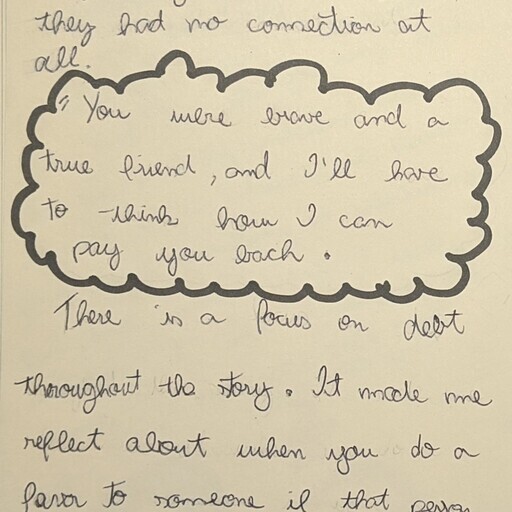 they had no connection at
all.
" You were brave and a
true friend, and I'll have
to think how I can
pay you back.
There is a focus on debt
throughout the story. It made me
reflect about when you do a
favor to someone if that person